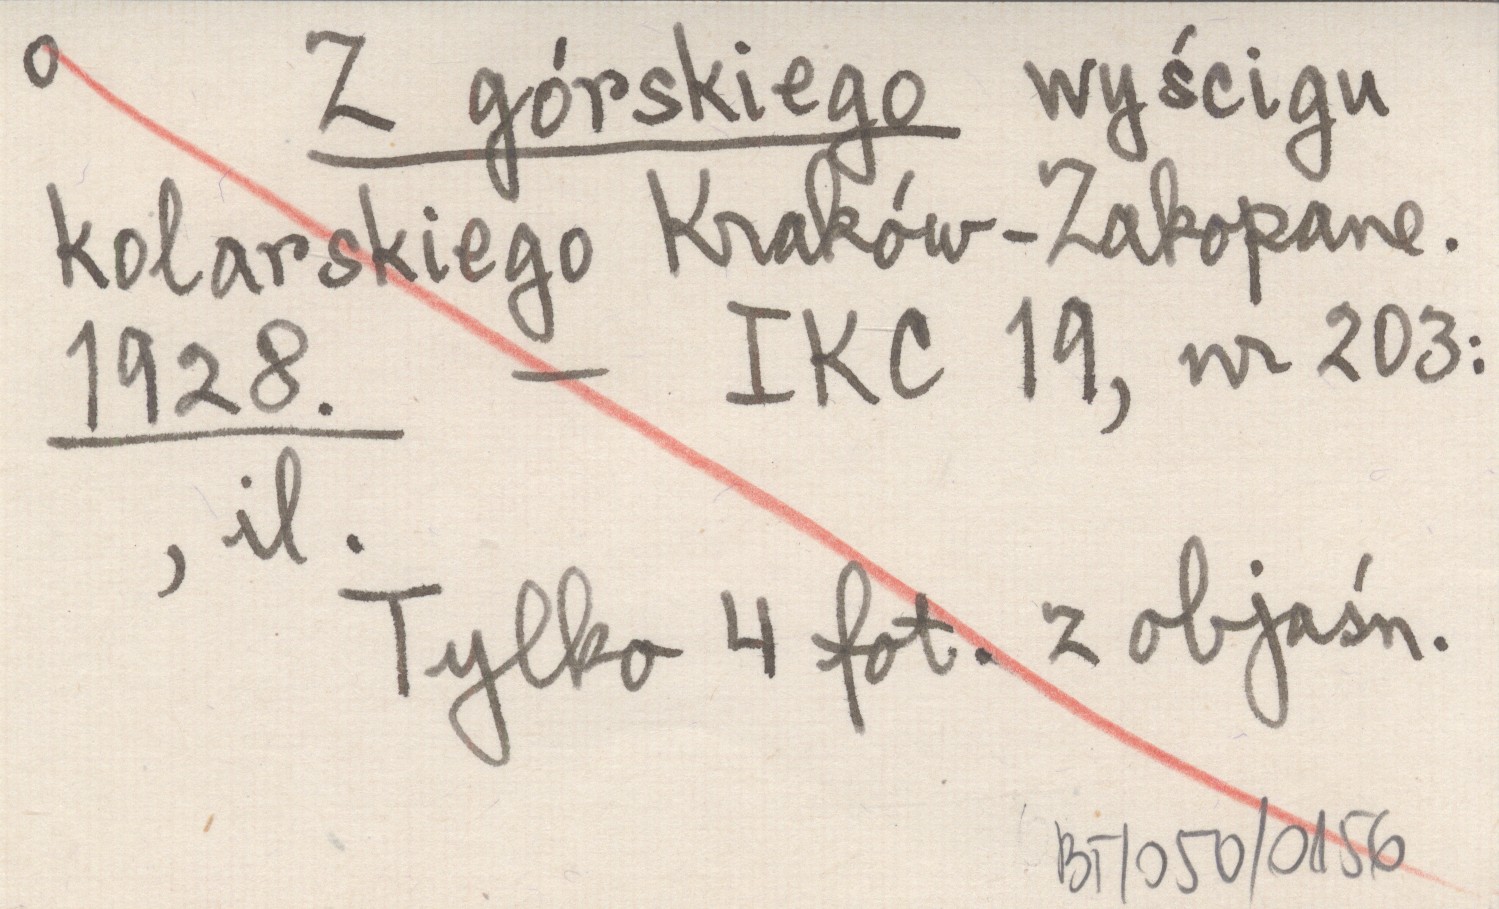 o Z górskiego wyścigu
kolarskiego Kraków-Zakopane.
1928. — IKC 19, nr 203:
, il.
Tylko 4 fot. z objaśn.
BT/050/0156